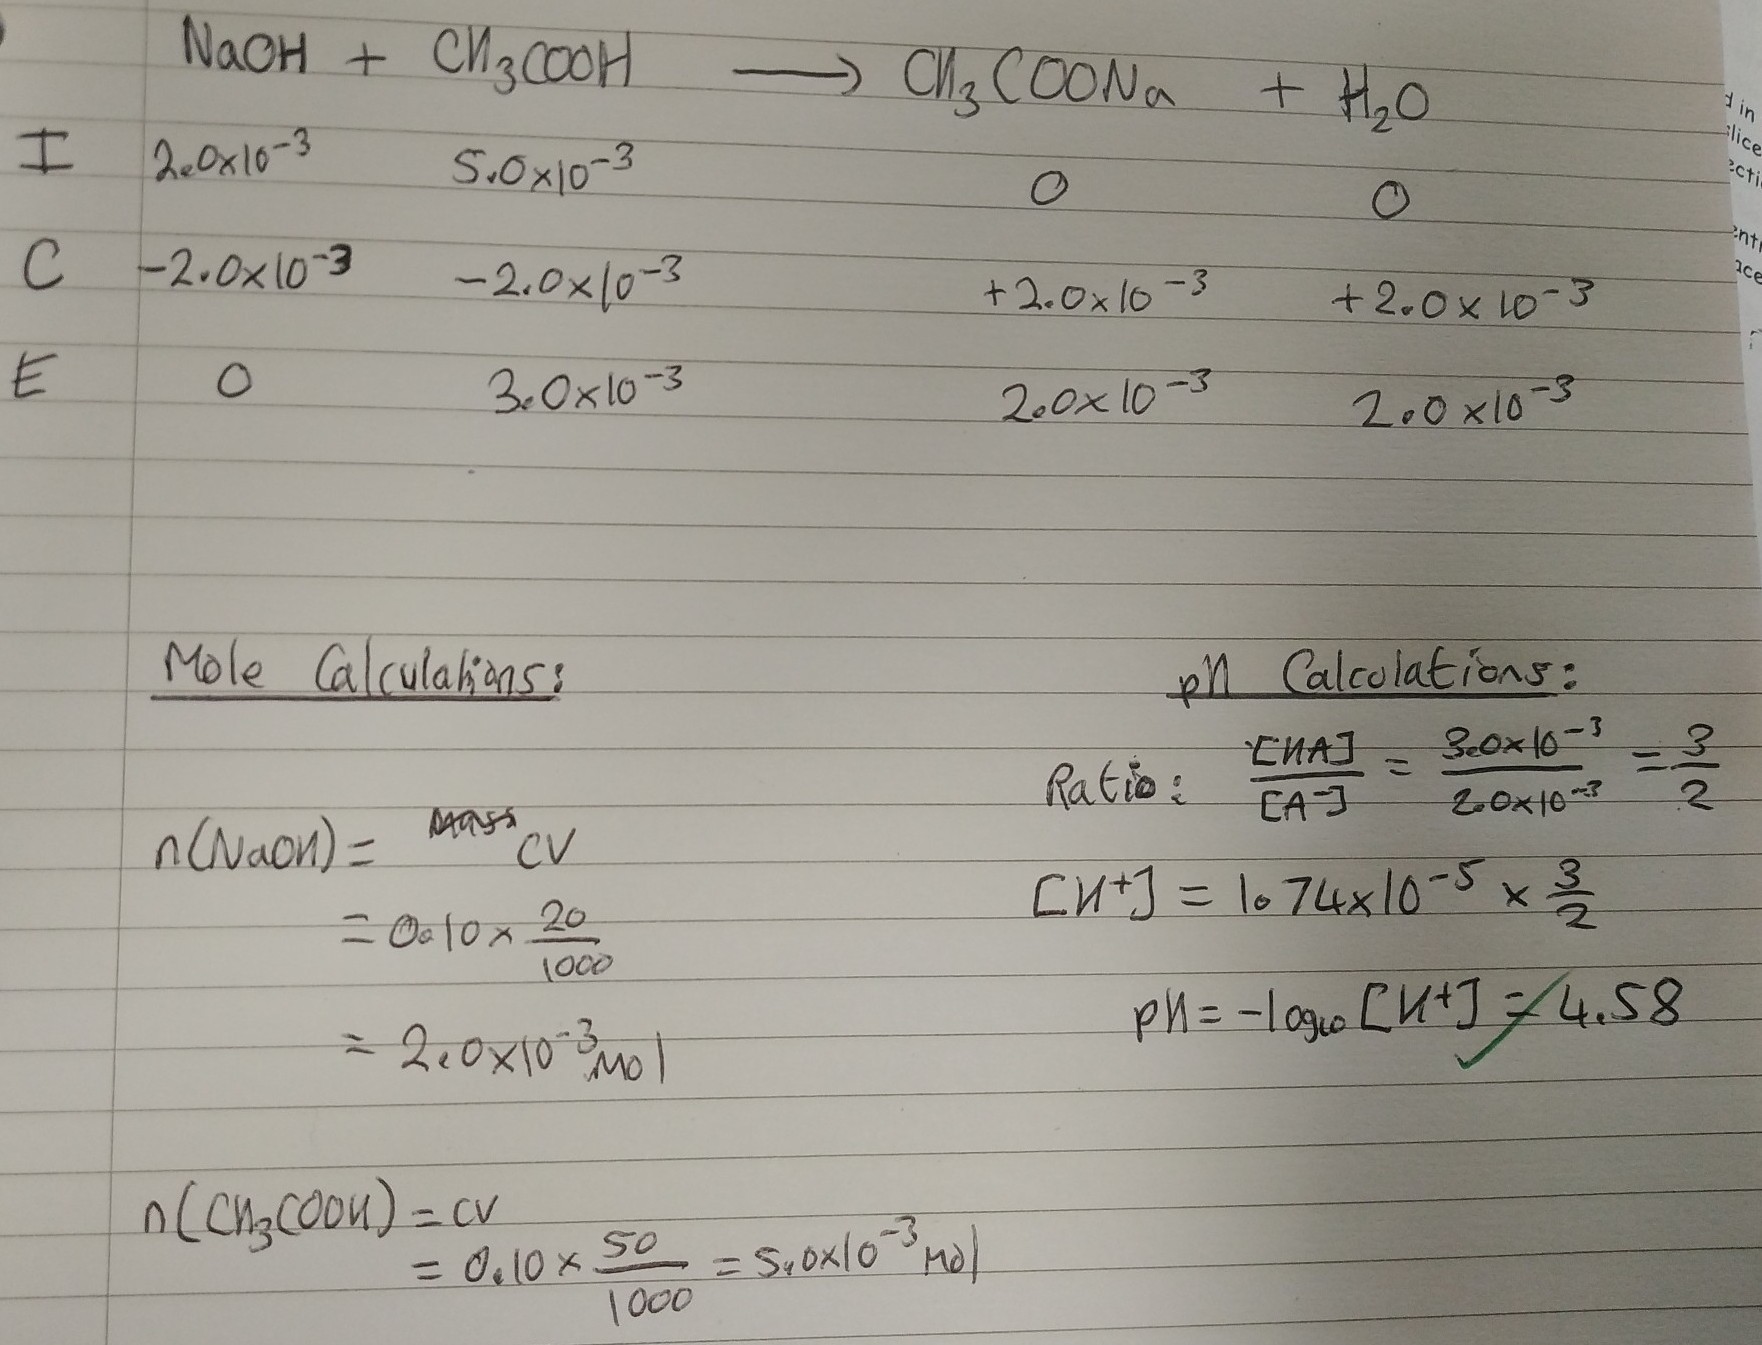 NaOH + CH₃COOH ⟶ CH₃COONa + H₂O
I 2.0x10⁻³ 5.0x10⁻³ 0 0
C -2.0x10⁻³ -2.0x10⁻³ +2.0x10⁻³ +2.0x10⁻³
E 0 3.0x10⁻³ 2.0x10⁻³ 2.0x10⁻³
Mole Calculations:
n(NaOH) = CV
= 0.10 x 20/1000
= 2.0x10⁻³ mol
n(CH₃COOH) = CV
= 0.10 x 50/1000 = 5.0x10⁻³ mol
pH Calculations:
Ratio: [HA]/[A⁻] = 3.0x10⁻³/2.0x10⁻³ = 3/2
[H⁺] = 1.74x10⁻⁵ x 3/2
pH = -log₁₀ [H⁺] = 4.58